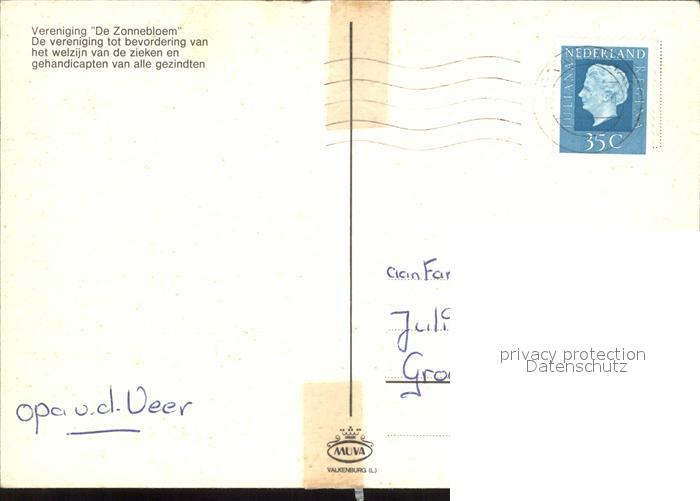 Vereniging "De Zonnebloem"
De vereniging tot bevordering van
het welzijn van de zieken en
gehandicapten van alle gezindten
NEDERLAND
JULIANA REGINA
35 C
aan Fa
Juli
privacy protection
Gro
Datenschutz
opa v.d. Veer
MUVA
VALKENBURG (L.)